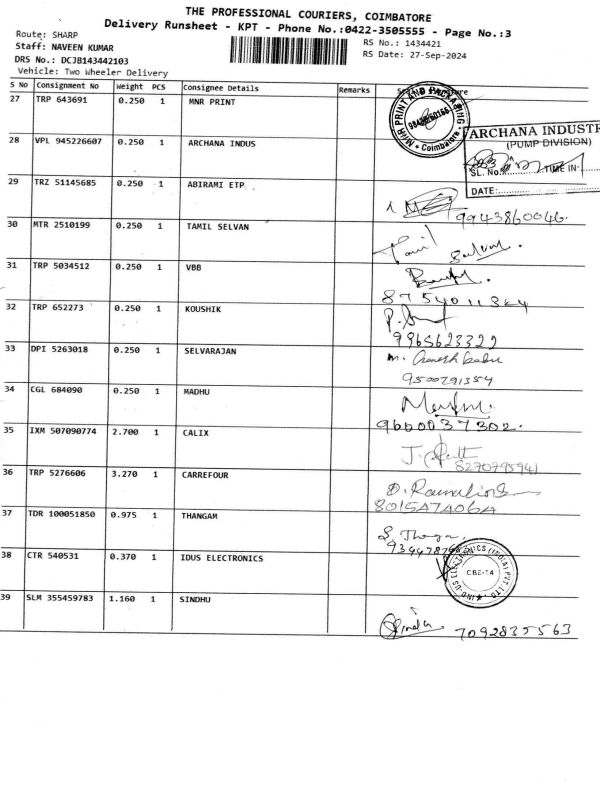 THE PROFESSIONAL COURIERS, COIMBATORE
Delivery Runsheet - KPT - Phone No.:0422-3505555 - Page No.:3
Route: SHARP
Staff: NAVEEN KUMAR
DRS No.: DCJB143442103
Vehicle: Two Wheeler Delivery
RS No.: 1434421
RS Date: 27-Sep-2024
S No Consignment No Weight PCS Consignee Details Remarks
27 TRP 643691 0.250 1 MNR PRINT
MNR PRINT AND PACKAGING
* Coimbatore *
28 VPL 945226607 0.250 1 ARCHANA INDUS
ARCHANA INDUSTR
(PUMP DIVISION)
SL. No. TIME IN
DATE:
29 TRZ 51145685 0.250 1 ABIRAMI ETP
9943860046.
30 MTR 2510199 0.250 1 TAMIL SELVAN
Tamil Selvan.
31 TRP 5034512 0.250 1 VBB
8754011384
32 TRP 652273 0.250 1 KOUSHIK
9965623322
33 DPI 5263018 0.250 1 SELVARAJAN
M. Ganesh babu
9500791354
34 CGL 684090 0.250 1 MADHU
9600037302.
35 IXM 507090774 2.700 1 CALIX
8270795941
36 TRP 5276606 3.270 1 CARREFOUR
37 TDR 100051850 0.975 1 THANGAM
38 CTR 540531 0.370 1 IDUS ELECTRONICS
IND-US ELECTRONICS (INDIA) PVT. LTD
CBE-14
39 SLM 355459783 1.160 1 SINDHU
Sindhu 7092835563